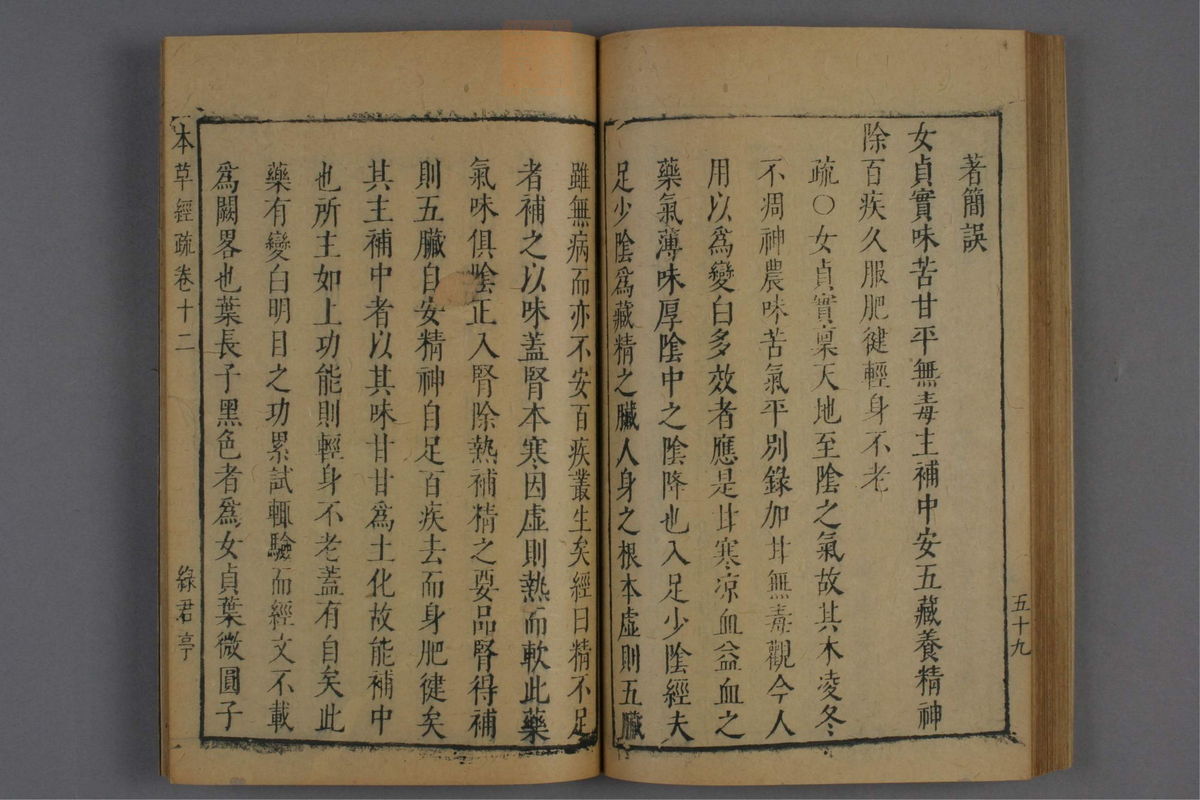 著簡誤
女貞實味苦甘平無毒主補中安五藏養精神
除百疾久服肥健輕身不老
疏○女貞實稟天地至陰之氣故其木凌冬
不凋神農味苦氣平別錄加甘無毒觀今人
用以爲變白多效者應是甘寒凉血益血之
藥氣薄味厚陰中之陰降也入足少陰經夫
足少陰爲藏精之臟人身之根本虛則五臟
五十九
雖無病而亦不安百疾叢生矣經曰精不足
者補之以味蓋腎本寒因虛則熱而軟此藥
氣味俱陰正入腎除熱補精之要品腎得補
則五臟自安精神自足百疾去而身肥健矣
其主補中者以其味甘甘爲土化故能補中
也所主如上功能則輕身不老蓋有自矣此
藥有變白明目之功累試輒驗而經文不載
爲闕畧也葉長子黑色者爲女貞葉微圓子
本草經疏卷十二
綠君亭